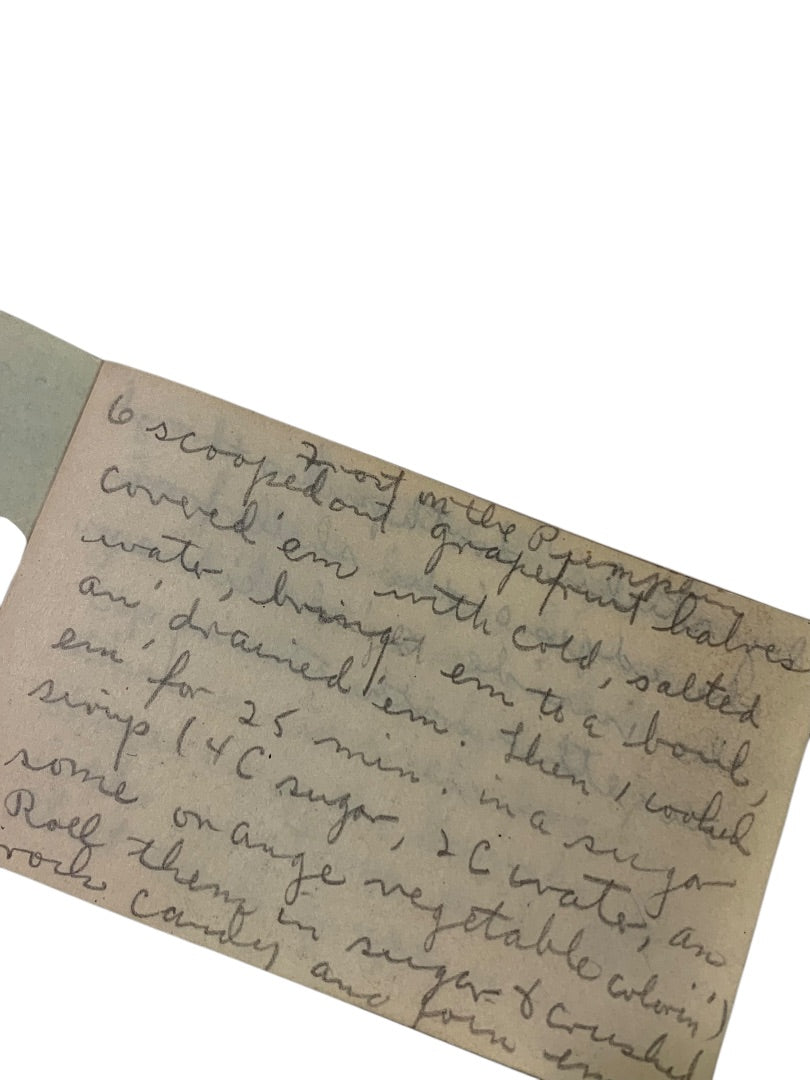 Frost on the Pumpkin
6 scooped out grapefruit halves
covered 'em with cold, salted
water, bring 'em to a boil,
an' drained 'em. Then I cooked
'em for 25 min. in a sugar
sirup (4 C sugar, 2 C water, an
some orange vegetable colorin')
Roll them in sugar & crushed
rock candy and join em